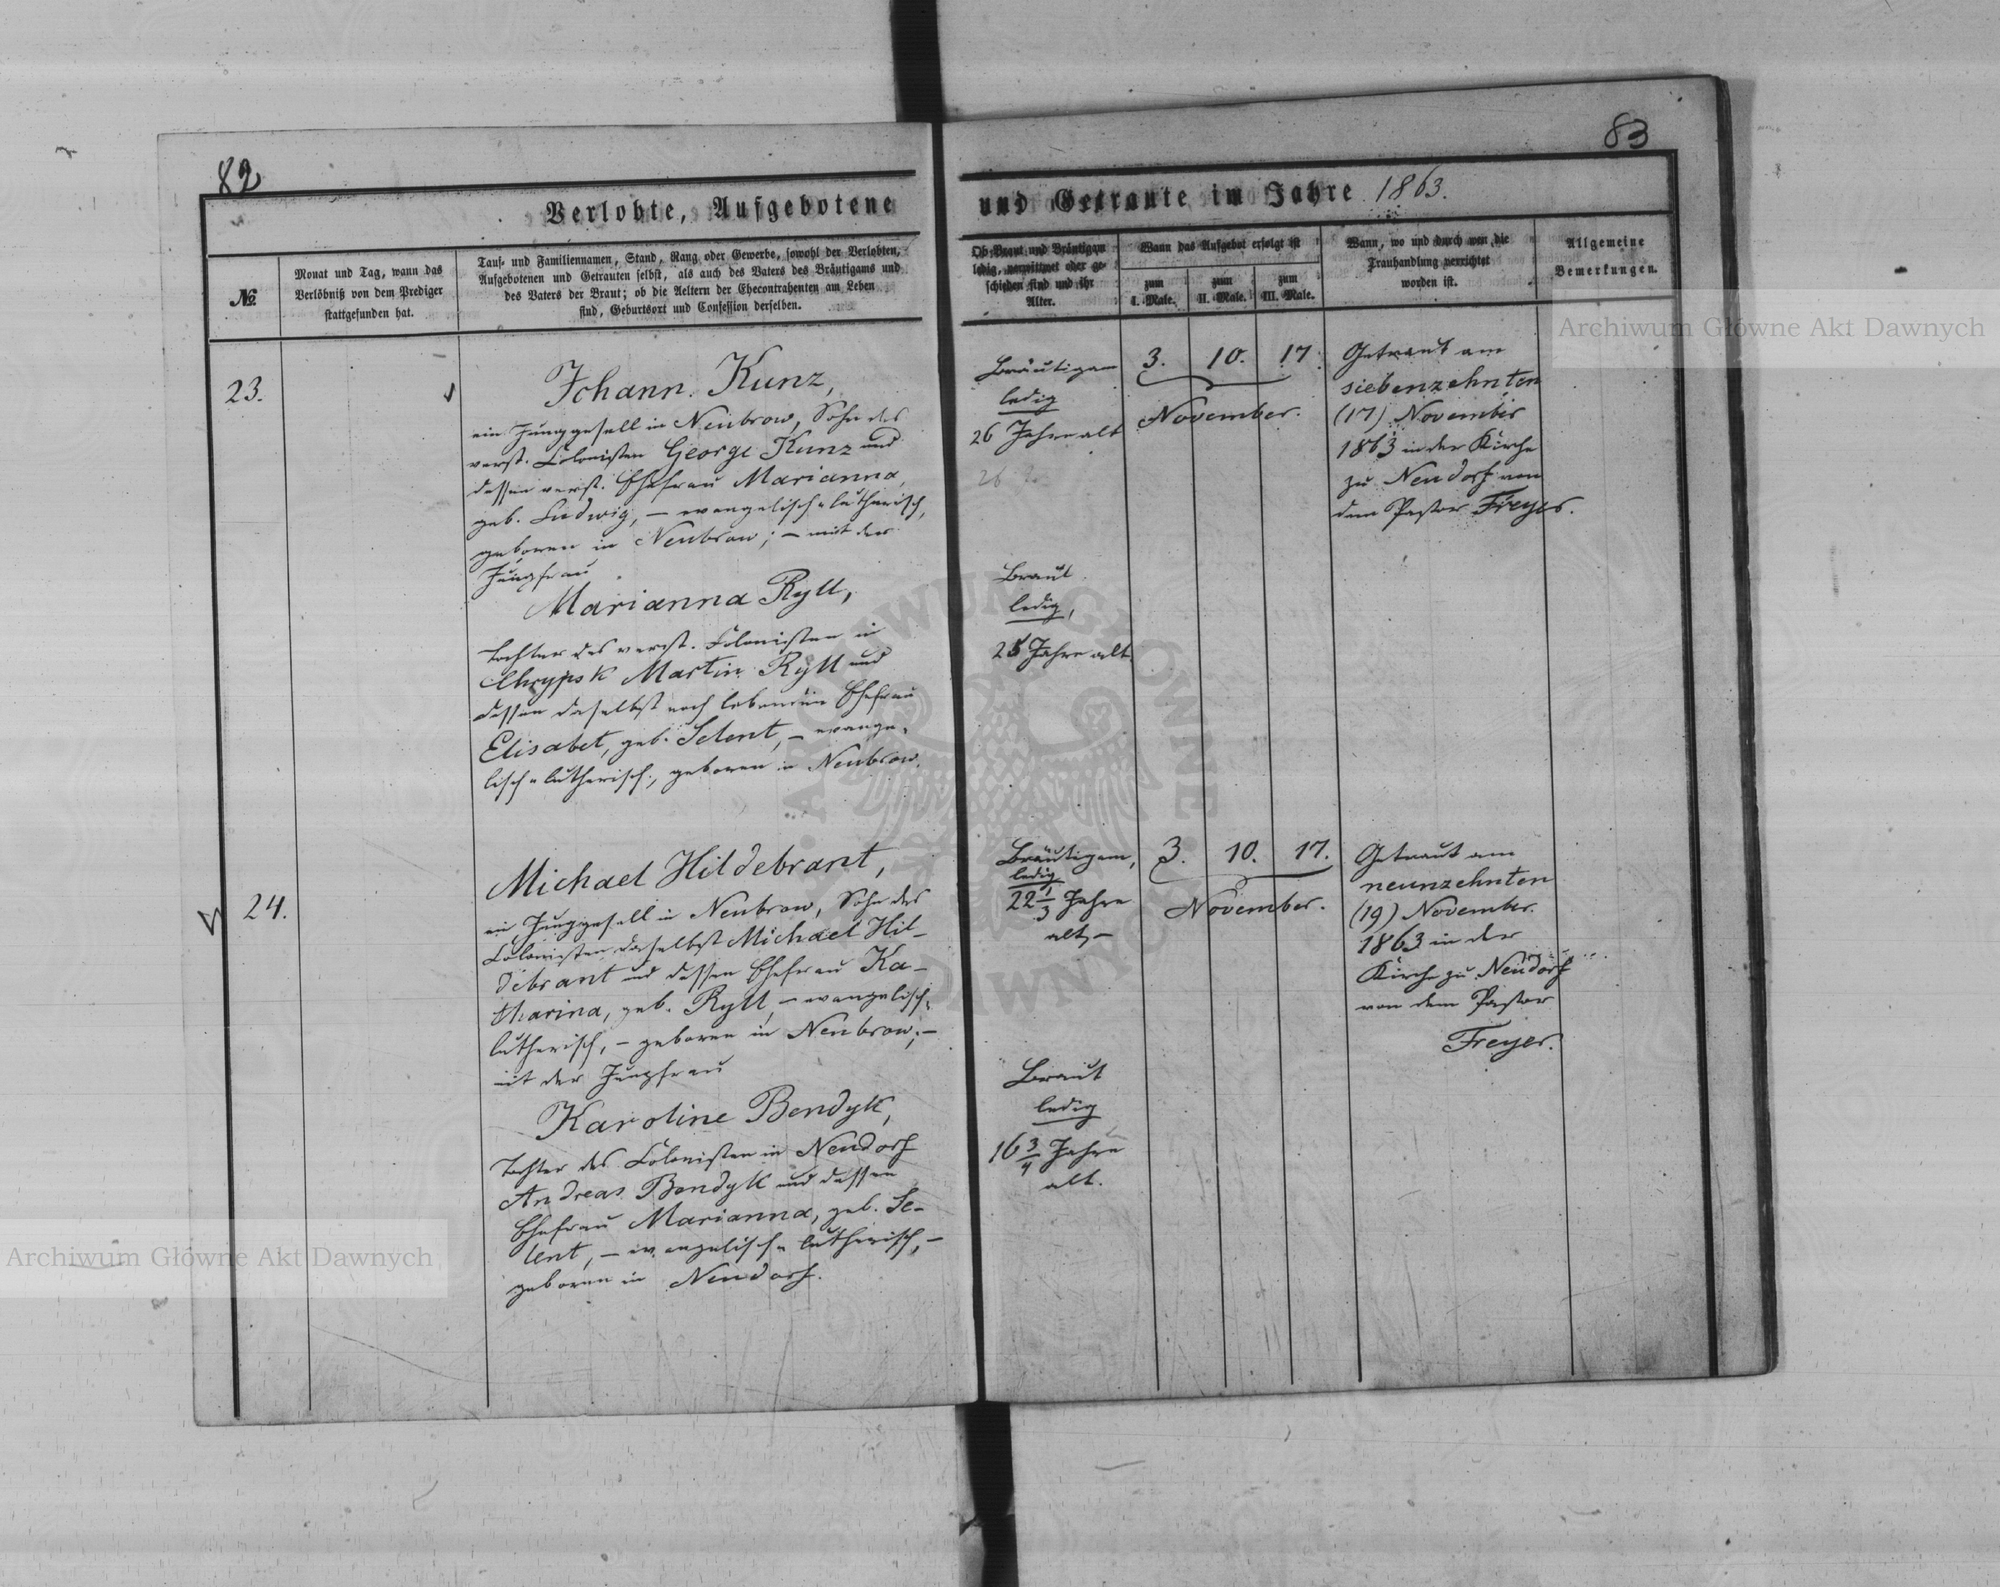 82
83
Verlobte, Aufgebotene
und Getraute im Jahre 1863.
№
Monat und Tag, wann das
Verlöbniß von dem Prediger
stattgefunden hat.
Tauf- und Familiennamen, Stand, Rang oder Gewerbe, sowohl der Verlobten,
Aufgebotenen und Getrauten selbst, als auch des Vaters des Bräutigams und
des Vaters der Braut; ob die Aeltern der Ehecontrahenten am Leben
sind, Geburtsort und Confession derselben.
Ob Braut und Bräutigam
ledig, verwittwet oder ge-
schieden sind und ihr
Alter.
Wann das Aufgebot erfolgt ist
zum
I. Male.
zum
II. Male.
zum
III. Male.
Wann, wo und durch wen die
Trauhandlung verrichtet
worden ist.
Allgemeine
Bemerkungen.
23.
Johann Kunz,
ein Junggesell in Neubrow, Sohn des
verst. Colonisten George Kunz und
dessen verst. Ehefrau Marianna,
geb. Ludwig, – evangelisch-lutherisch,
geboren in Neubrow; – mit der
Jungfrau
Marianna Ryll,
Tochter des verst. Colonisten in
Chrypsk Martin Ryll und
dessen daselbst noch lebenden Ehefrau
Elisabet, geb. Selent, – evange-
lisch-lutherisch, geboren in Neubrow.
Bräutigam
ledig
26 Jahre alt
Braut
ledig,
Jahre alt.
3. 10. 17.
November.
Getraut am
siebenzehnten
(17) November
1863 in der Kirche
zu Neudorf von
dem Pastor Freyer.
24.
Michael Hildebrant,
ein Junggesell in Neubrow, Sohn des
Colonisten daselbst Michael Hil-
debrant und dessen Ehefrau Ka-
tharina, geb. Ryll, – evangelisch-
lutherisch, – geboren in Neubrow; –
mit der Jungfrau
Karoline Bendyk,
Tochter des Colonisten in Neudorf
Andreas Bendyk und dessen
Ehefrau Marianna, geb. Se-
lent, – evangelisch-lutherisch, –
geboren in Neudorf.
Bräutigam,
ledig
22 1/3 Jahre
alt, –
Braut
ledig
16 3/4 Jahre
alt.
3. 10. 17.
November.
Getraut am
neunzehnten
(19) November
1863 in der
Kirche zu Neudorf
von dem Pastor
Freyer.
Archiwum Główne Akt Dawnych
Archiwum Główne Akt Dawnych
ARCHIWUM GŁÓWNE AKT DAWNYCH